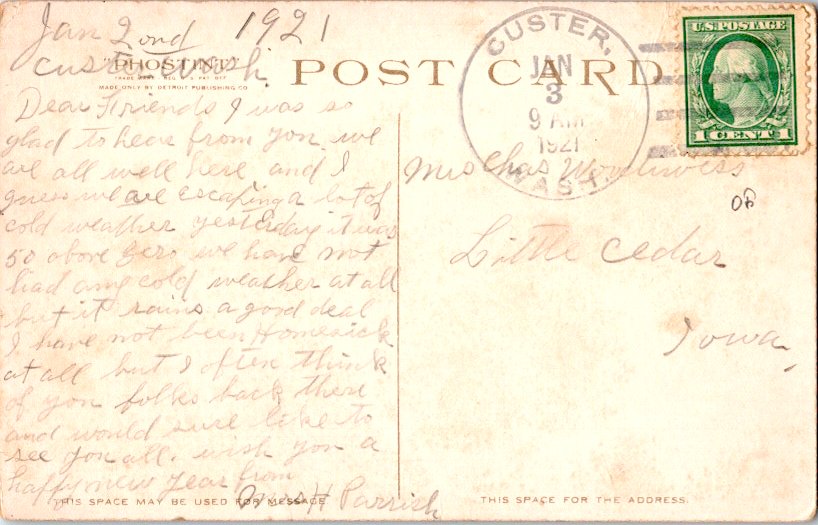 Jan 2ond 1921
Custer Wash.
"PHOSTINT"
TRADE MARK REG. U.S. PAT. OFF.
MADE ONLY BY DETROIT PUBLISHING CO.
POST CARD
Dear Friends I was so
glad to hear from you. we
are all well here and I
guess we are escaping a lot of
cold weather yesterday it was
50 above zero we have not
had any cold weather at all
but it rains a good deal
I have not been Homesick
at all but I often think
of you folks back there
and would sure like to
see you all. wish you a
happy new year from
Mrs H Parrish
THIS SPACE MAY BE USED FOR MESSAGE
CUSTER,
JAN
3
9 AM
1921
WASH.
U.S. POSTAGE
1 CENT 1
Mrs Chas
Little Cedar
Iowa,
THIS SPACE FOR THE ADDRESS.